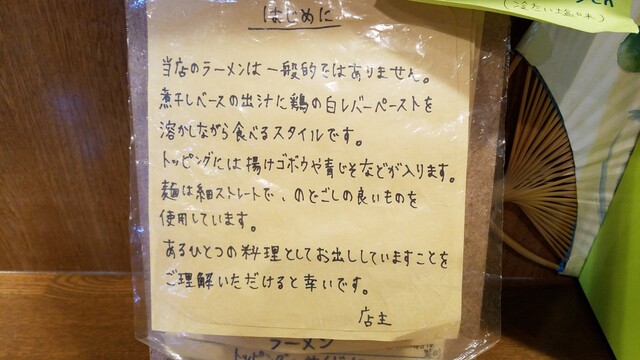 はじめに
(冷たい塩そば)
当店のラーメンは一般的ではありません。
煮干しベースの出汁に鶏の白レバーペーストを
溶かしながら食べるスタイルです。
トッピングには揚げゴボウや青じそなどが入ります。
麺は細ストレートで、のどごしの良いものを
使用しています。
あるひとつの料理としてお出ししていますことを
ご理解いただけると幸いです。
店主
ラーメン
トッピング